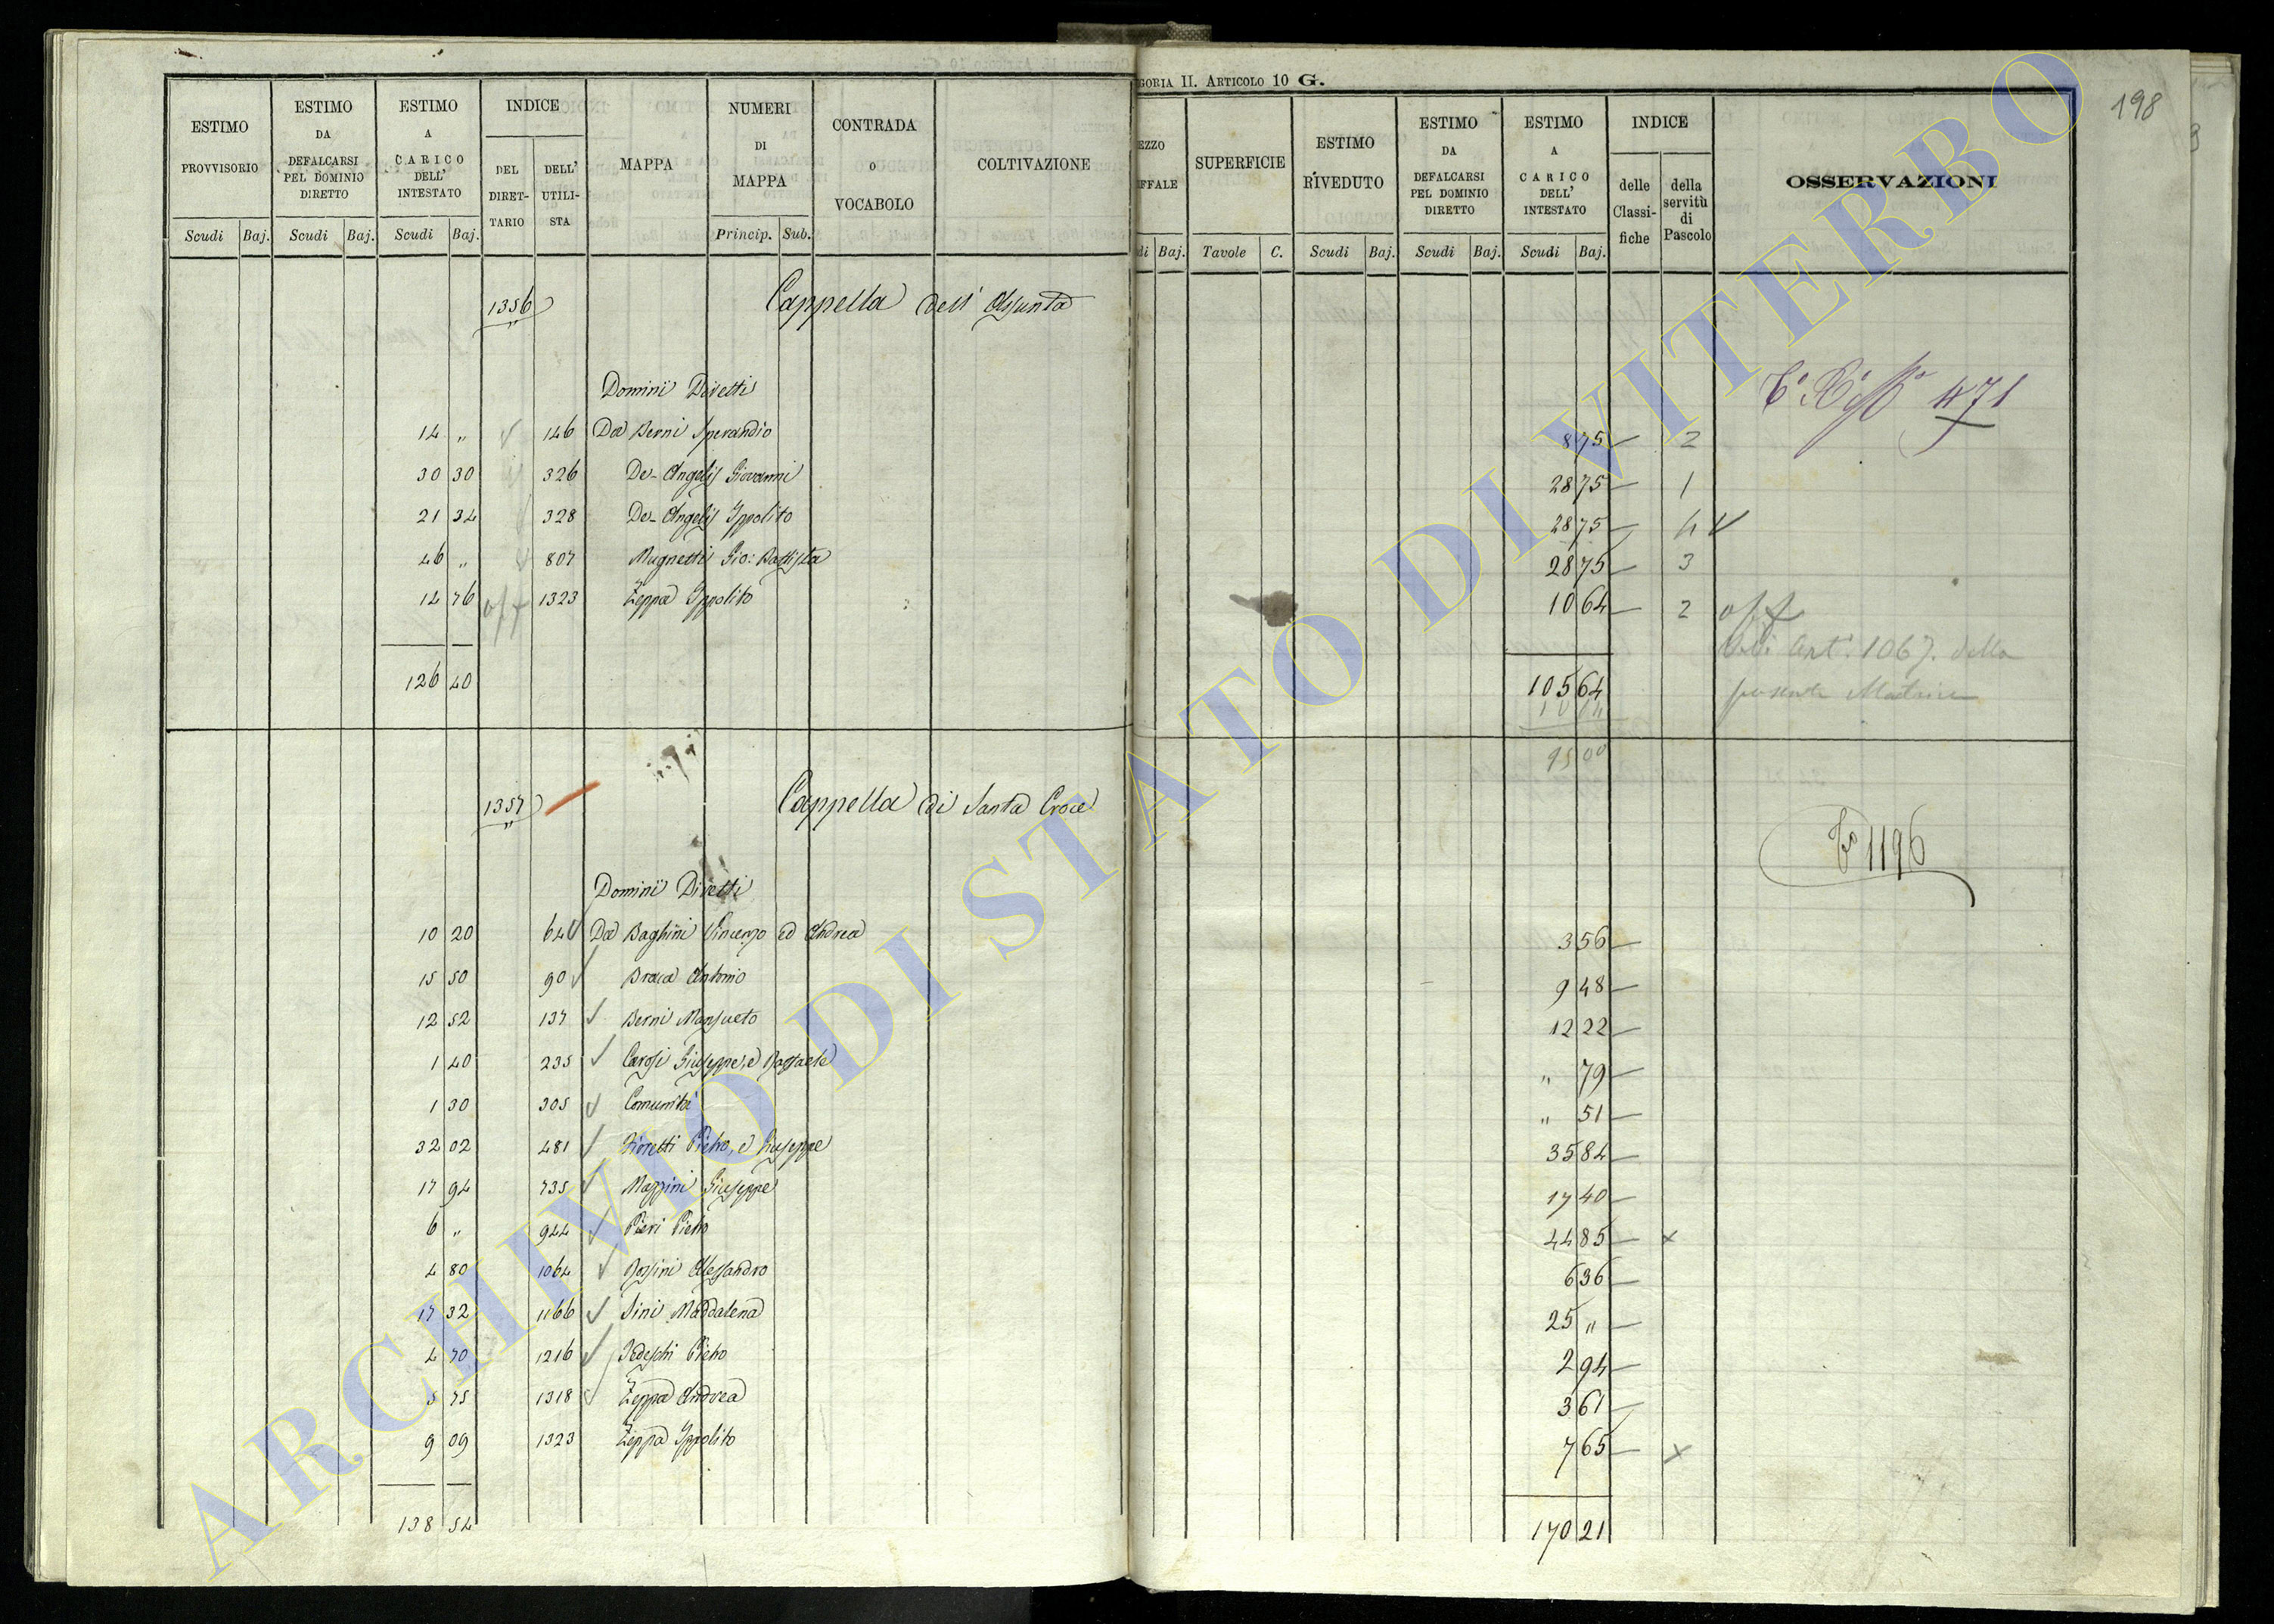 GORIA II. ARTICOLO 10 G.
198
ESTIMO PROVVISORIO
ESTIMO DA DEFALCARSI PEL DOMINIO DIRETTO
ESTIMO A CARICO DELL' INTESTATO
INDICE
DEL DIRETTARIO
DELL' UTILISTA
MAPPA
NUMERI DI MAPPA
CONTRADA o VOCABOLO
COLTIVAZIONE
EZZO
IFFALE
SUPERFICIE
ESTIMO RIVEDUTO
ESTIMO DA DEFALCARSI PEL DOMINIO DIRETTO
ESTIMO A CARICO DELL' INTESTATO
INDICE
delle Classifiche
della servitù di Pascolo
OSSERVAZIONI
Scudi Baj. Scudi Baj. Scudi Baj. Princip. Sub.
di Baj. Tavole C. Scudi Baj. Scudi Baj. Scudi Baj.
1356 Cappella dell' Assunta
Domini Diretti
471
14 " 146 Da Berni Sperandio 8 75 2
30 30 326 De-Angelis Giovanni 28 75 1
21 34 328 De-Angelis Ippolito 28 75 4
46 " 807 Mugnetti Gio: Battista 28 75 3
14 76 off 1323 Zeppa Ippolito 10 64 2 off
Art. 1067. della
presente Matrice
126 40 105 64
10 64
95 00
1357 Cappella di Santa Croce
1196
Domini Diretti
10 20 64 Da Baghini Vincenzo ed Andrea 3 56
15 50 90 Braca Antonio 9 48
12 52 137 Berni Mansueto 12 22
1 40 235 Carosi Giuseppe, e Raffaele " 79
1 30 305 Comunità " 51
32 02 481 Fioretti Pietro, e Giuseppe 35 84
17 94 735 Mazzini Giuseppe 17 40
6 " 944 Pieri Pietro 44 85 x
4 80 1064 Rossini Alessandro 6 36
17 32 1166 Sini Maddalena 25 "
4 70 1216 Tedeschi Pietro 2 94
5 75 1318 Zeppa Andrea 3 61
9 09 1323 Zeppa Ippolito 7 65 x
138 54 170 21
ARCHIVIO DI STATO DI VITERBO